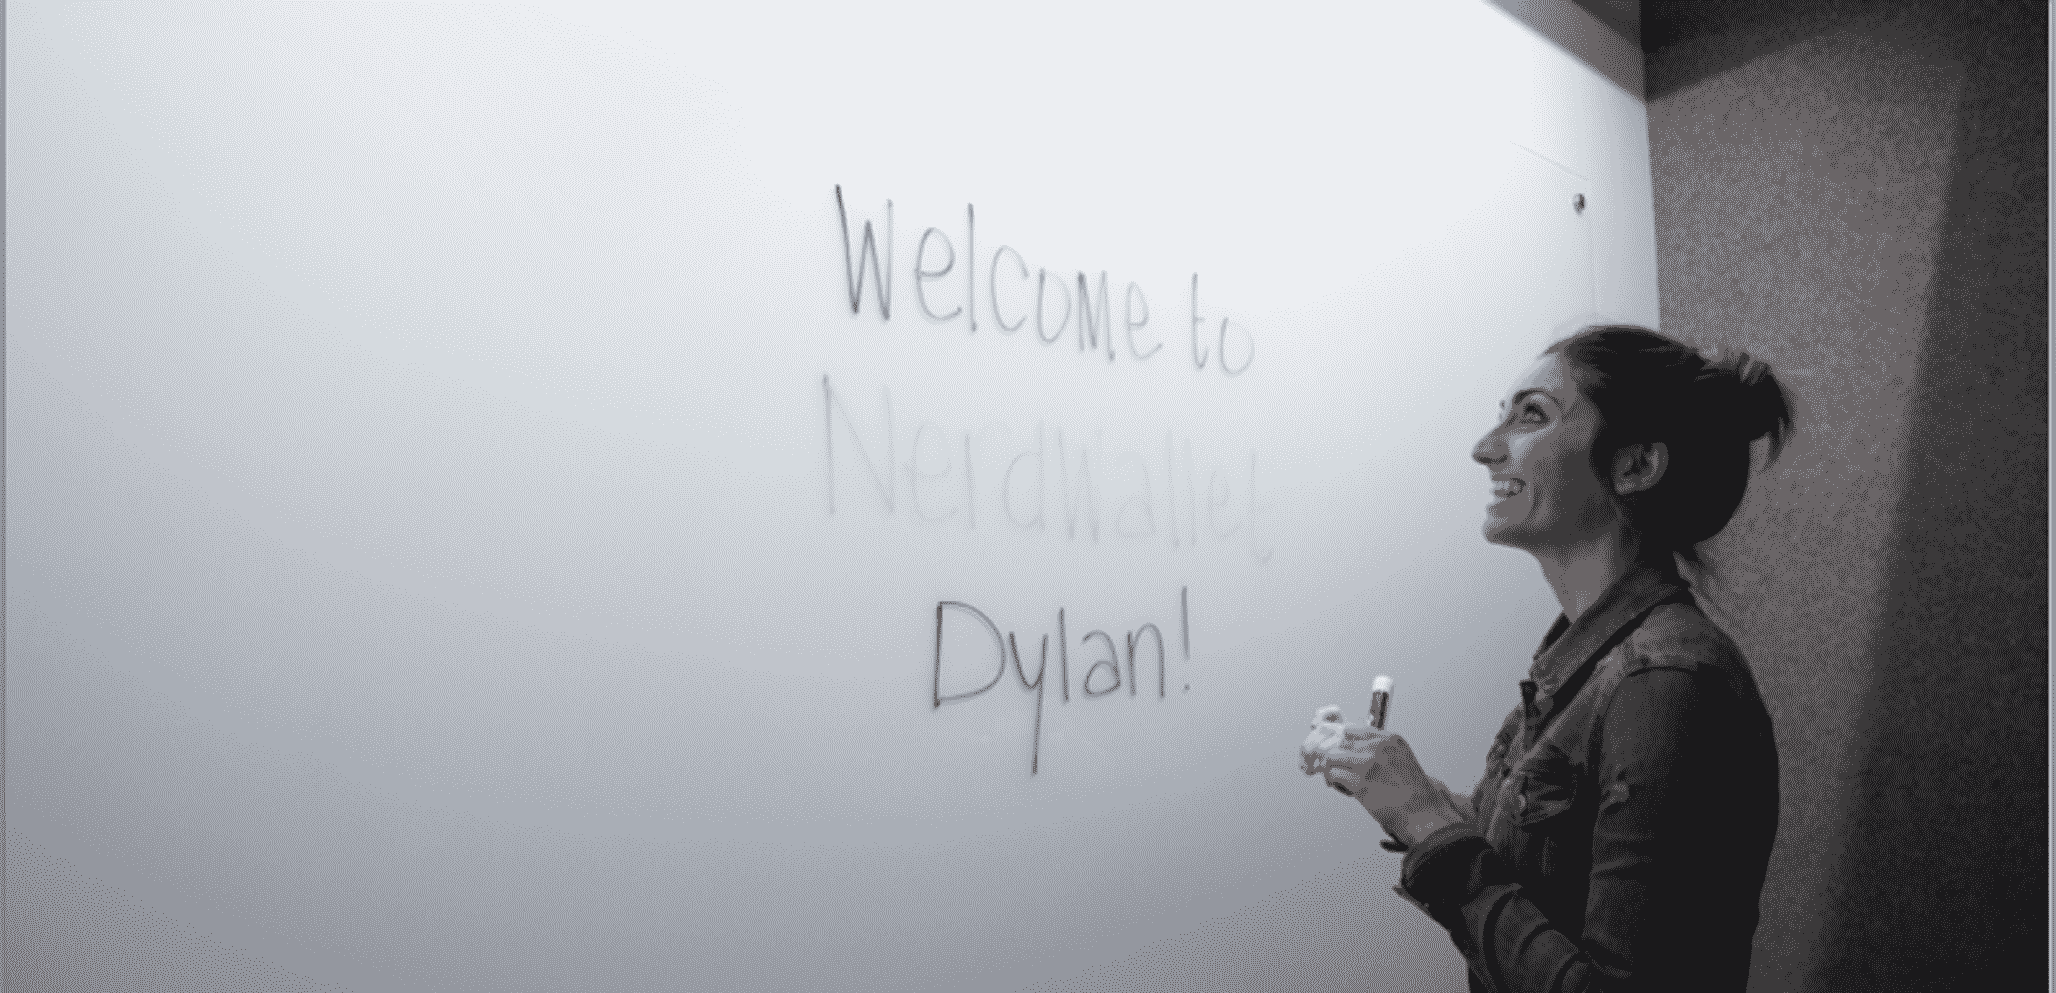 Welcome to
Nerdwallet
Dylan!